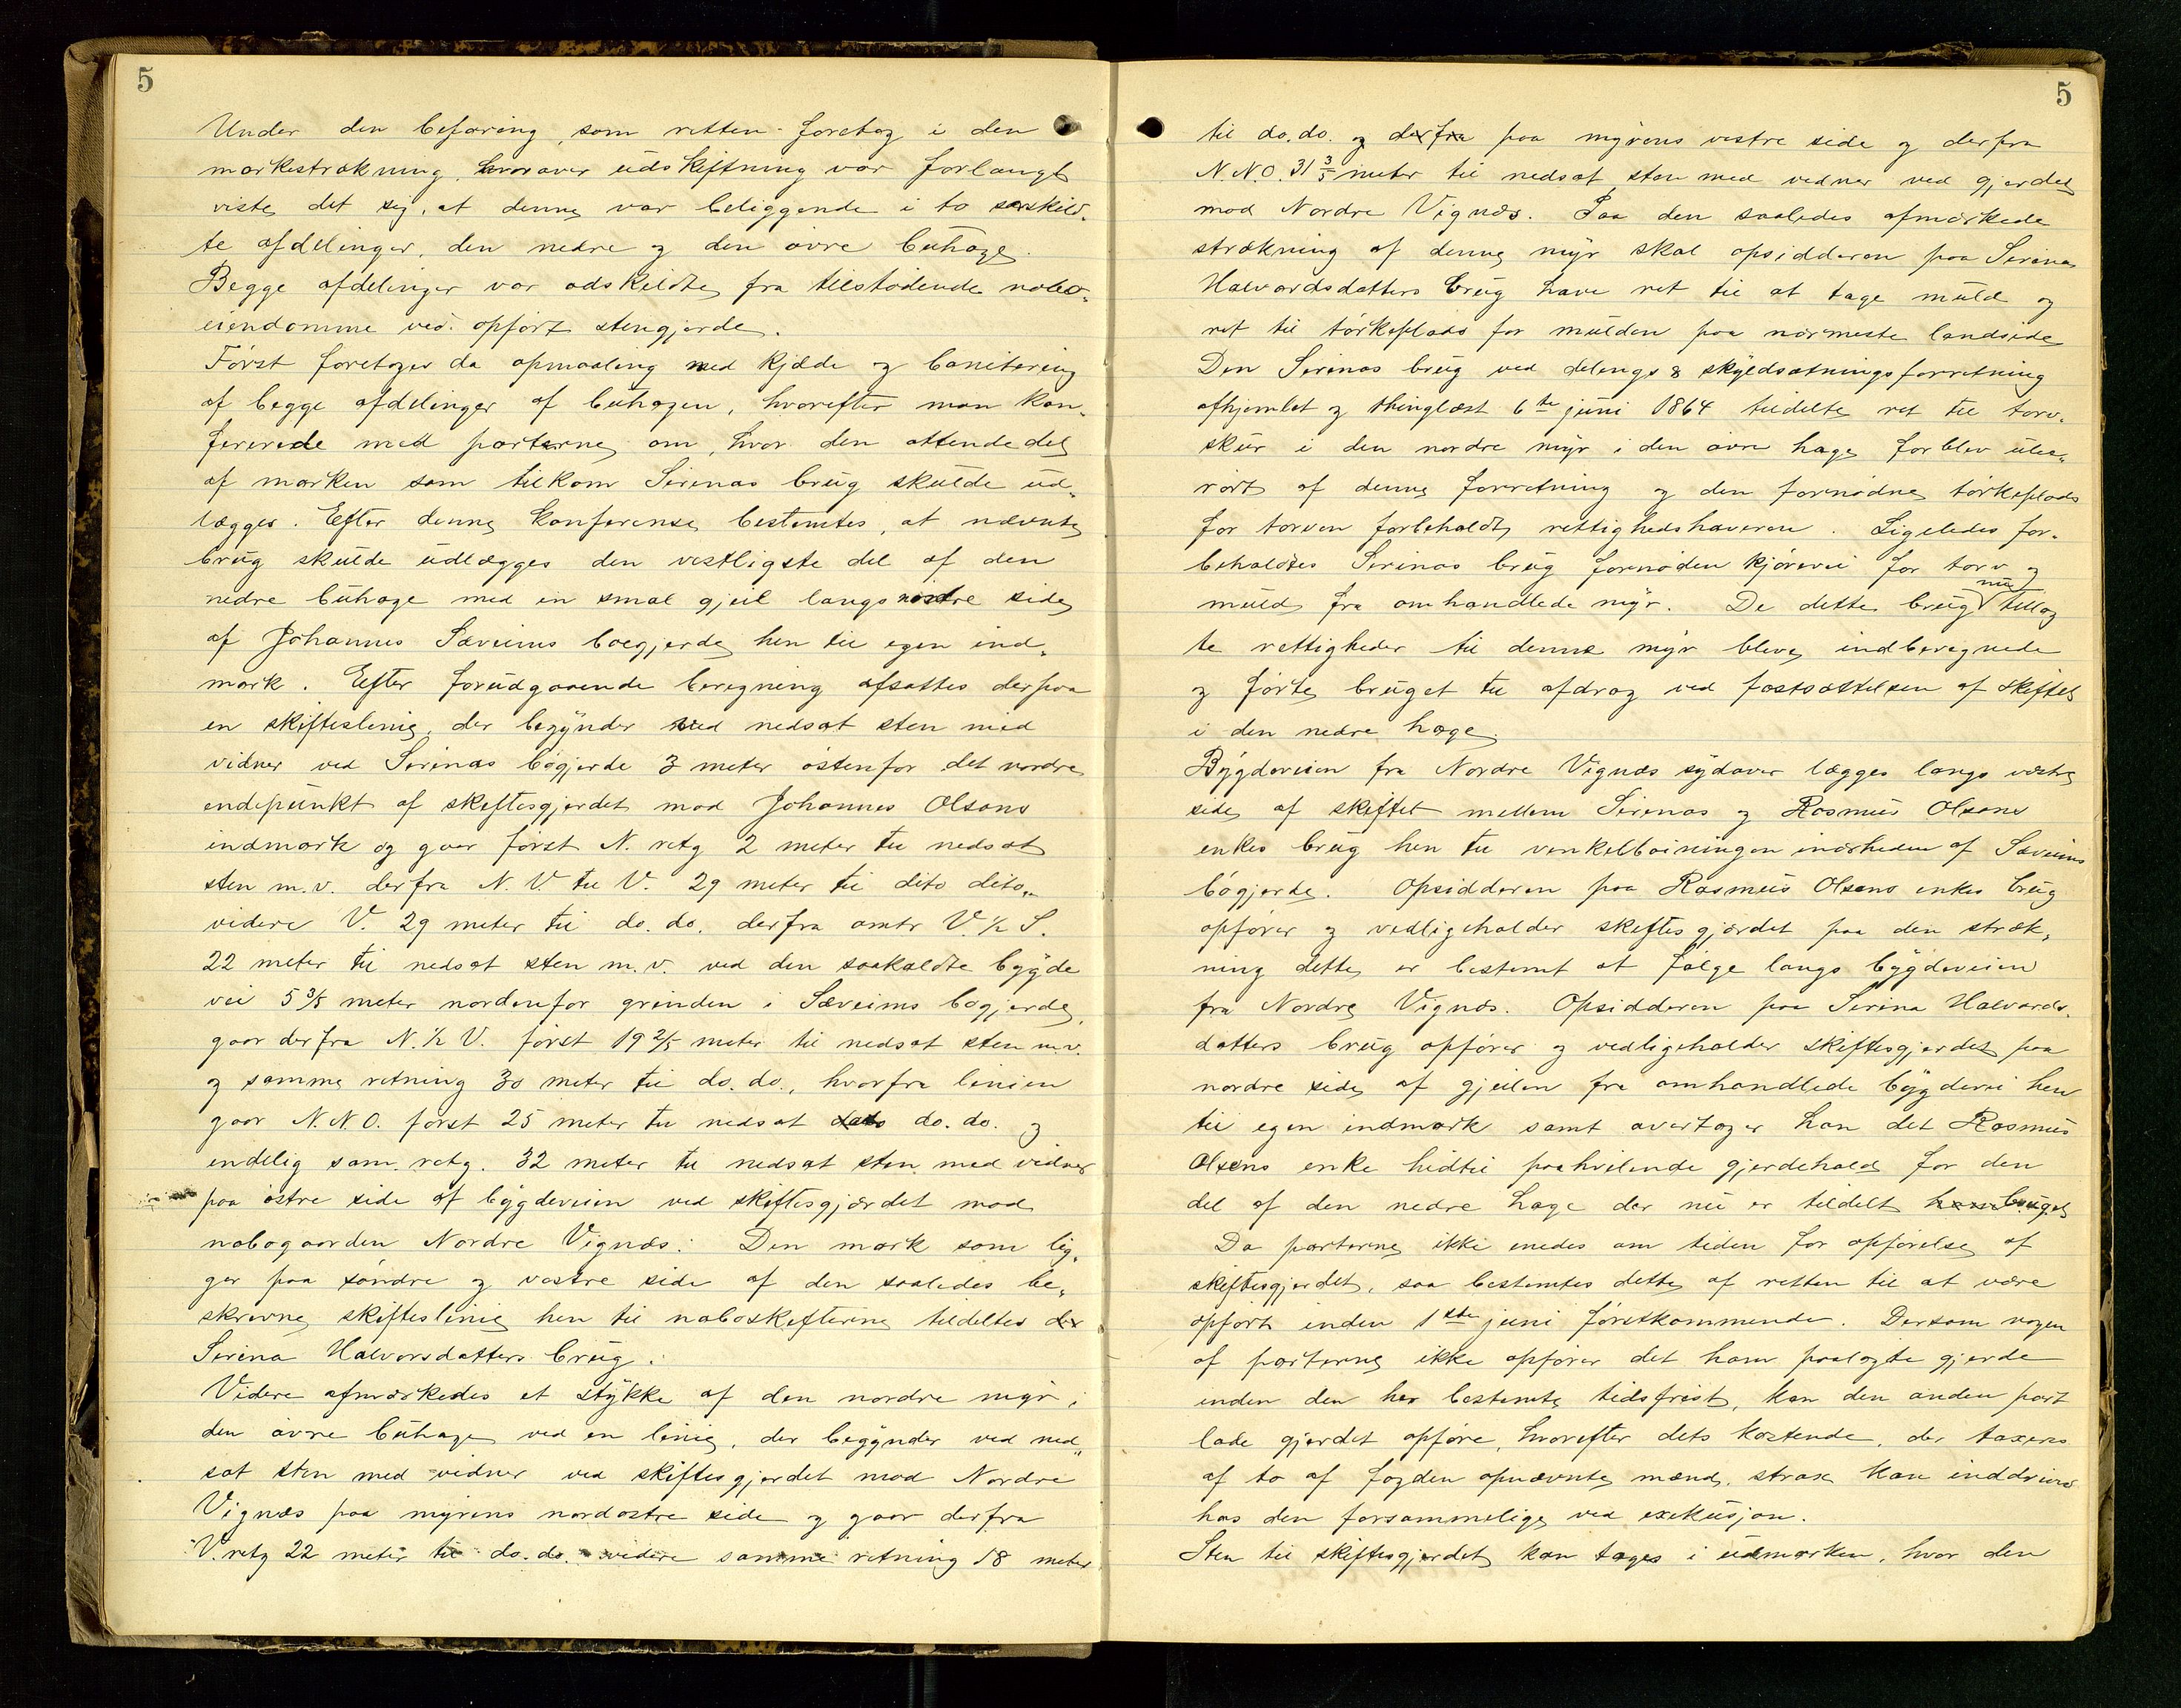 5
Under den befaring, som retten foretog i den
markestrækning, hvorover udskiftning var forlangt
viste det sig, at denne var beliggende i to særskild-
te afdelinger, den nedre og den øvre buhage.
Begge afdelinger var adskildte fra tilstødende nabo-
eiendomme ved opført stengjerde.
Først foretoges da opmaaling med kjæde og bonitering
af begge afdelinger af buhagen, hvorefter man kon-
fererede med parterne om, hvor den ottendedel
af marken som tilkom Serinas brug skulde ud-
lægges. Efter denne konferense bestemtes, at nævnte
brug skulde udlægges den vestligste del af den
nedre buhage med en smal gjeil langs nordre side
af Johannes Sæveims bøgjerde hen til egen ind-
mark. Efter forudgaaende beregning afsattes derpaa
en skifteslinie, der begynder ved nedsat sten med
vidner ved Serinas bøgjerde 3 meter østenfor det nordre
endepunkt af skiftesgjerdet mod Johannes Olsens
indmark og gaar først N. retg 2 meter til nedsat
sten m.v. derfra N. V. til V. 29 meter til dito dito,
videre V. 29 meter til do. do. derfra omtr V. ½ S.
22 meter til nedsat sten m.v. ved den saakaldte bygde
vei 5 3/5 meter nordenfor grinden i Sæveims bøgjerde,
gaar derfra N. ½ V. først 19 2/5 meter til nedsat sten m.v.
og samme retning 30 meter til do. do., hvorfra linien
gaar N. N. O. først 25 meter til nedsat do. do. og
endelig sam. retg. 32 meter til nedsat sten med vidner
paa østre side af bygdeveien ved skiftesgjærdet mod
nabogaarden Nordre Vignæs. Den mark som lig-
ger paa søndre og vestre side af den saaledes be-
skrevne skifteslinie hen til naboskifterne tildeltes
Serina Halvorsdatters brug.
Videre afmærkedes et stykke af den nordre myr i
den øvre buhage ved en linie, der begynder ved ned-
sat sten med vidner ved skiftesgjerdet mod Nordre
Vignæs paa myrens nordøstre side og gaar derfra
V. retg 22 meter til do. do. videre samme retning 18 meter
5
til do. do. og derfra paa myrens vestre side og derfra
N. N. O. 31 3/5 meter til nedsat sten med vedner ved gjerdet
mod Nordre Vignæs. Paa den saaledes afmærkede
strækning af denne myr skal opsidderen paa Serina
Halvordsdatters brug have ret til at tage muld og
ret til tørkeplads for mulden paa nærmeste landside
Den Serinas brug ved delings & skyldsætningsforretning
afhjemlet og thinglæst 6te juni 1864 tildelte ret til torv-
skur i den nordre myr i den øvre hage forblev ube-
rørt af denne forretning og den fornødne tørkeplads
for torven forbeholdt rettighedshaveren. Ligeledes for-
beholdtes Serinas brug fornøden kjørevei for torv og
muld fra omhandlede myr. De dette brug nu tillag-
te rettigheder til denne myr bleve indberegnede
og førte bruget til afdrag ved fastsættelsen af skiftet
i den nedre hage.
Bygdeveien fra Nordre Vignæs sydover lægges langs østre
side af skiftet mellem Serinas og Rasmus Olsens
enkes brug hen til venkelbøiningen inærheden af Sæveims
bøgjerde. Opsidderen paa Rasmus Olsens enkes brug
opfører og vedligeholder skiftesgjærdet paa den stræk-
ning dette er bestemt at følge langs bygdeveien
fra Nordre Vignæs. Opsidderen paa Serina Halvords-
datters brug opfører og vedligeholder skiftesgjerdet paa
nordre side af gjeilen fra omhandlede bygdevei hen
til egen indmark samt overtager han det Rasmus
Olsens enke hidtil paahvilende gjerdehold for den
del af den nedre hage der nu er tildelt bruget
Da parterne ikke enedes om tiden for opførelse af
skiftesgjerdet, saa bestemtes dette af retten til at være
opført inden 1ste juni førstkommende. Dersom nogen
af parterne ikke opfører det ham paalagte gjerde
inden den her bestemte tidsfrist, kan den anden part
lade gjerdet opføre, hvorefter dets kostende, der taxeres
af to af fogden opnævnte mænd, strax kan inddrives
hos den forsømmelige ved exekusjon.
Sten til skiftesgjerdet kan tages i udmarken, hvor den